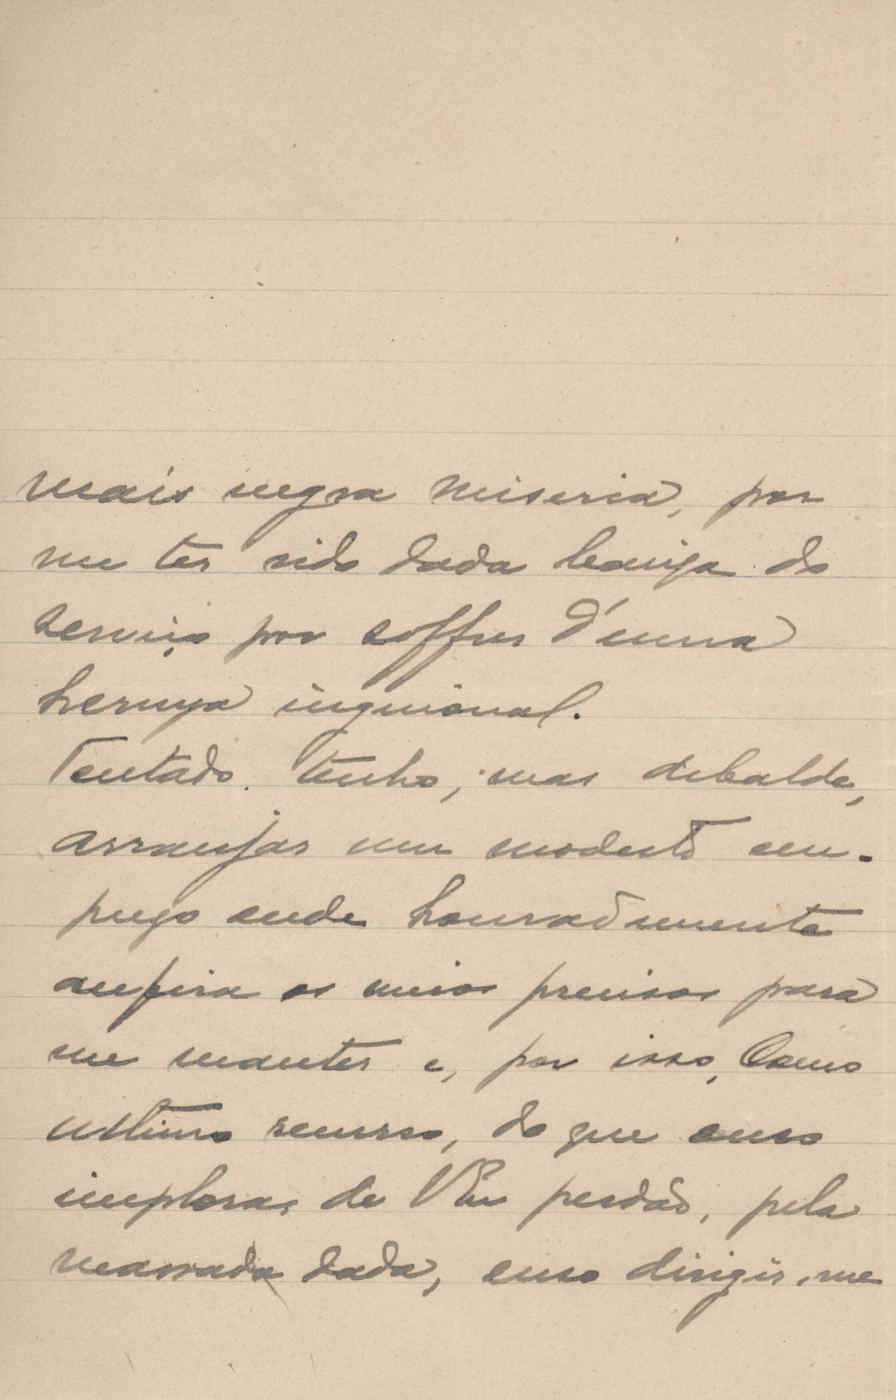 mais negra miseria, por
me ter sido dada baixa do
serviço por soffrer d'uma
hernya inguinal.
Tentado tenho, mas debalde,
arranjar um modesto em-
prego onde honradamente
aufira os meios precisos para
me manter e, por isso, como
ultimo recurso, do que ouso
implorar de VEx perdão, pela
massada dada, ouso dirigir-me